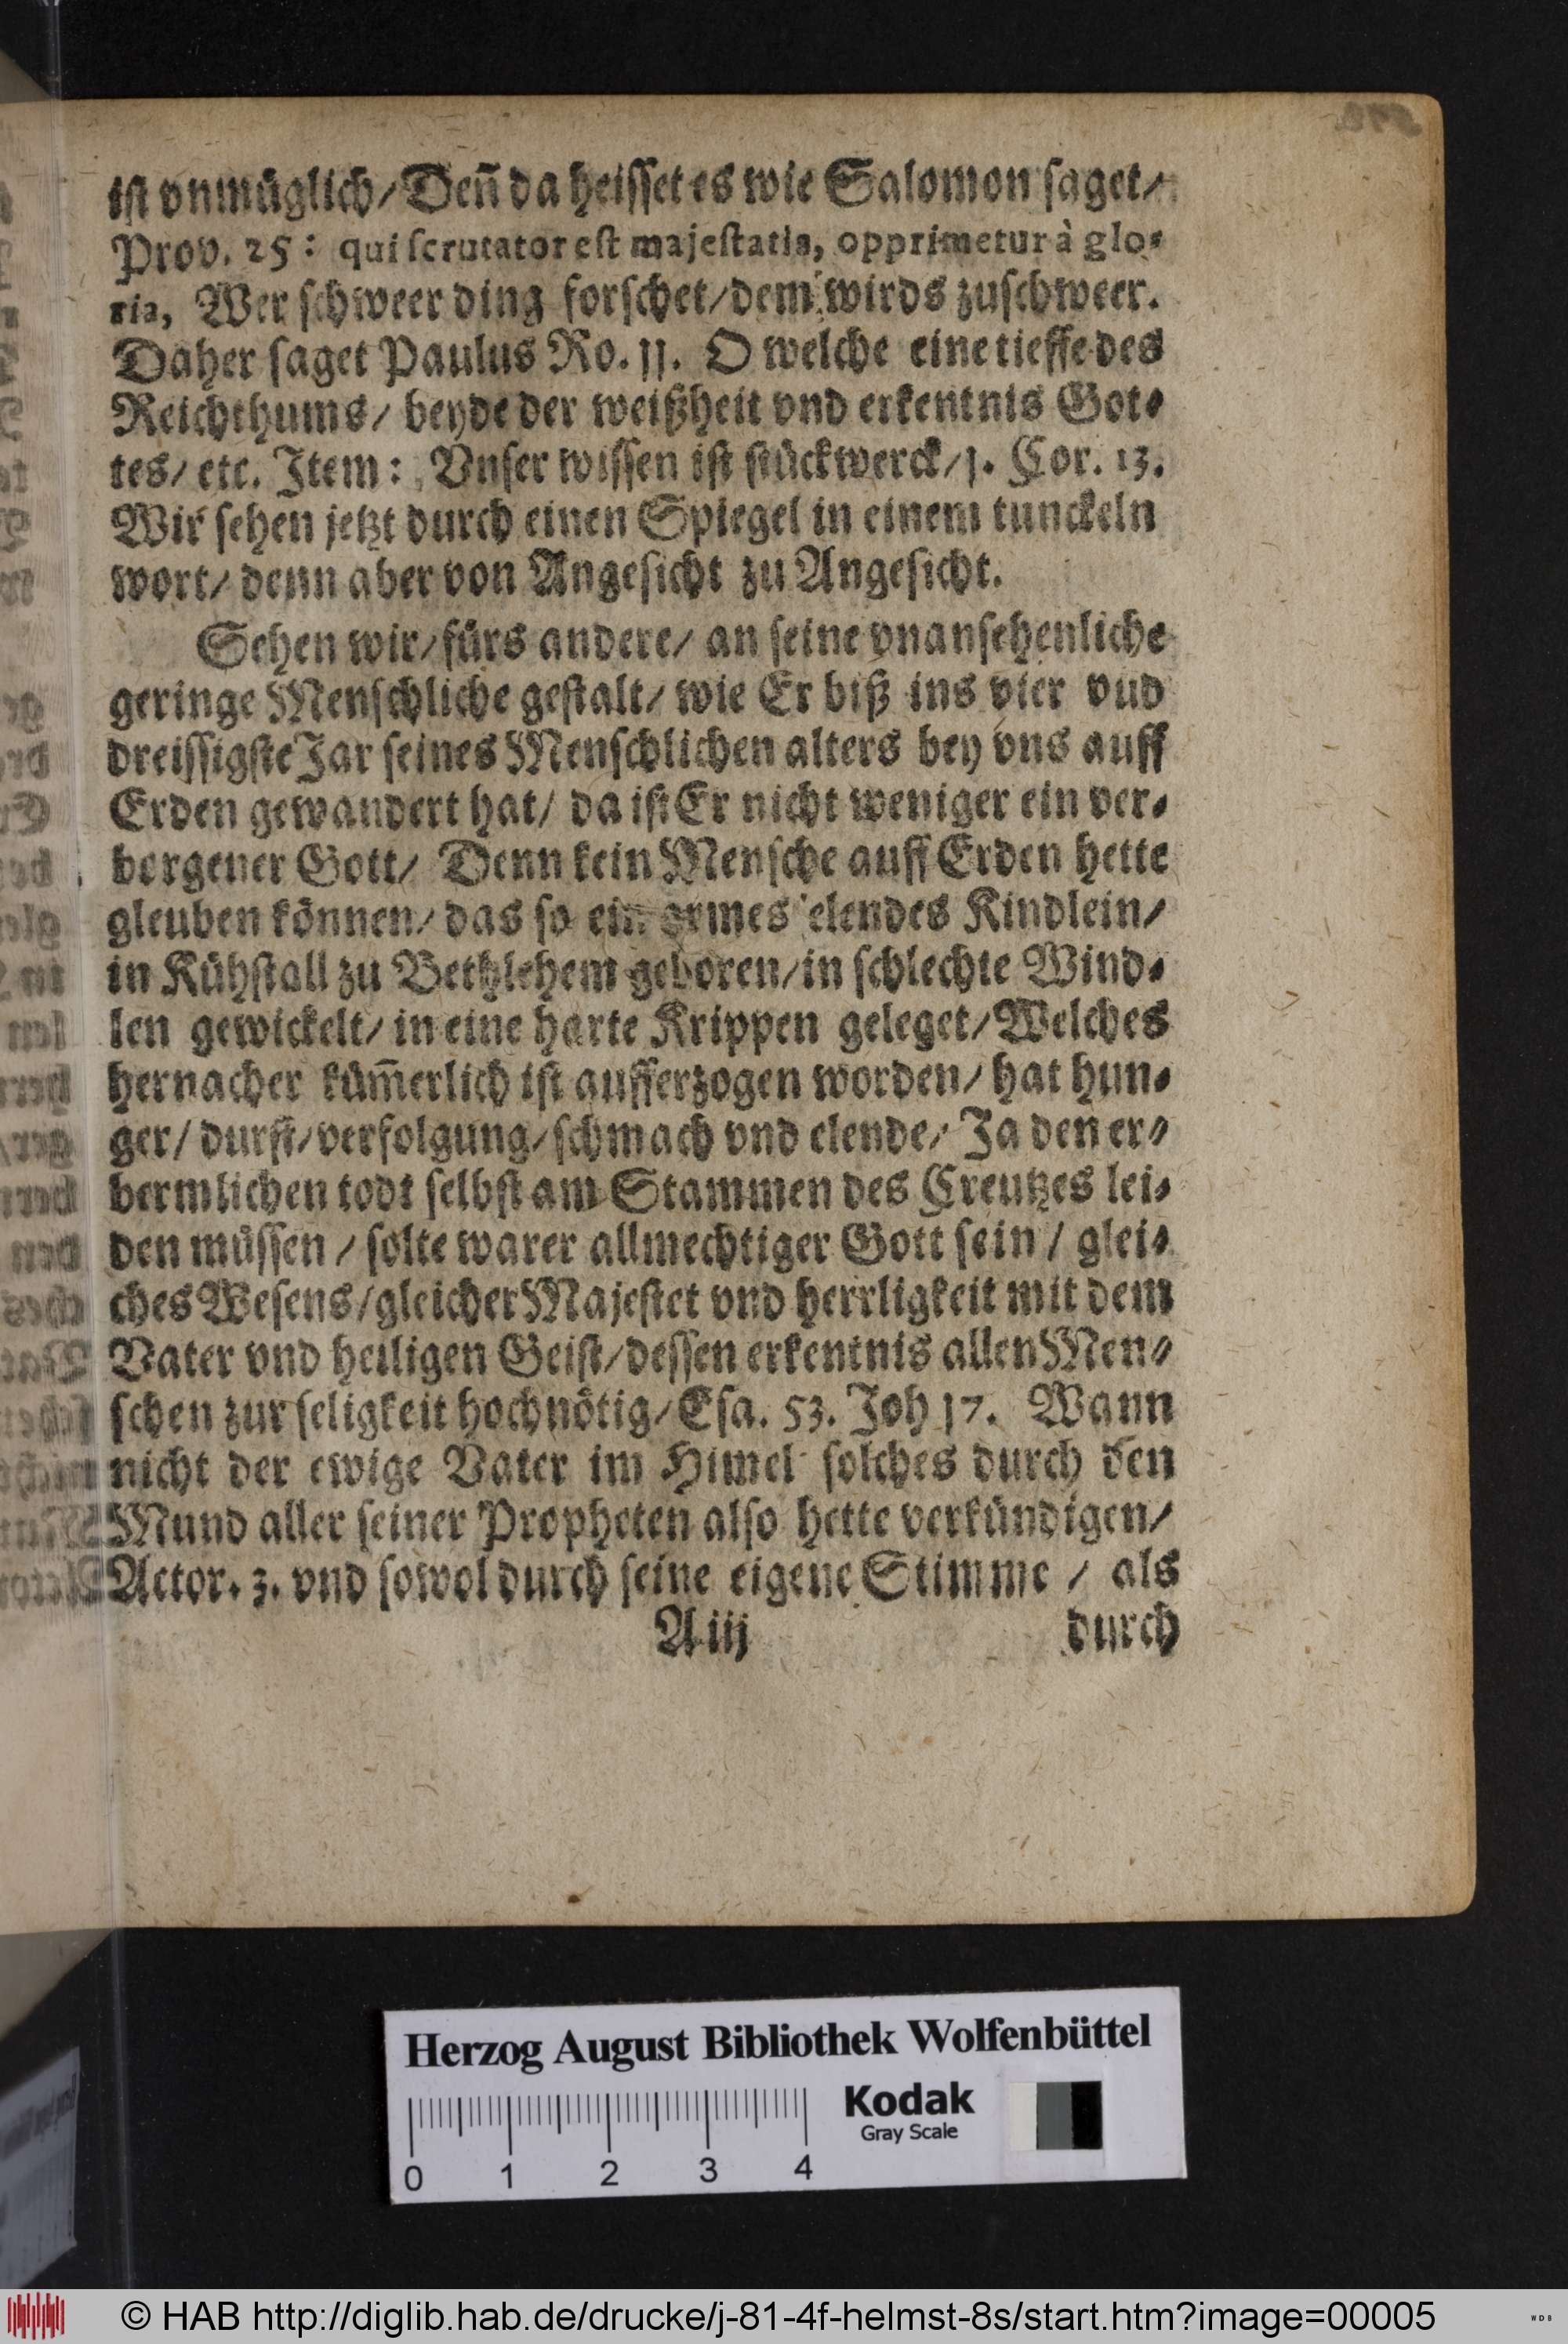 ist vnmüglich/ Deñ da heisset es wie Salomon saget/
Prov. 25: qui scrutator est majestatis, opprimetur à glo-
ria, Wer schweer ding forschet/ dem wirds zuschweer.
Daher saget Paulus Ro. 11. O welche eine tieffe des
Reichthums/ beyde der weißheit vnd erkentnis Got-
tes/ etc. Item: Vnser wissen ist stückwerck/ 1. Cor. 13.
Wir sehen jetzt durch einen Spiegel in einem tunckeln
wort/ denn aber von Angesicht zu Angesicht.
Sehen wir/ fürs andere/ an seine vnansehenliche
geringe Menschliche gestalt/ wie Er biß ins vier vnd
dreissigste Jar seines Menschlichen alters bey vns auff
Erden gewandert hat/ da ist Er nicht weniger ein ver-
borgener Gott/ Denn kein Mensche auff Erden hette
gleuben können/ das so ein armes elendes Kindlein/
in Kühstall zu Bethlehem geboren/ in schlechte Wind-
len gewickelt/ in eine harte Krippen geleget/ Welches
hernacher küm̃erlich ist aufferzogen worden/ hat hun-
ger/ durst/ verfolgung/ schmach vnd elende/ Ja den er-
bermlichen todt selbst am Stammen des Creutzes lei-
den müssen / solte warer allmechtiger Gott sein / glei-
ches Wesens/ gleicher Majestet vnd herrligkeit mit dem
Vater vnd heiligen Geist/ dessen erkentnis allen Men-
schen zur seligkeit hochnötig/ Esa. 53. Joh 17. Wann
nicht der ewige Vater im Himel solches durch den
Mund aller seiner Propheten also hette verkündigen/
Actor. 3. vnd sowol durch seine eigene Stimme / als
A iij durch
Herzog August Bibliothek Wolfenbüttel
Kodak
Gray Scale
0 1 2 3 4
© HAB http://diglib.hab.de/drucke/j-81-4f-helmst-8s/start.htm?image=00005
WDB